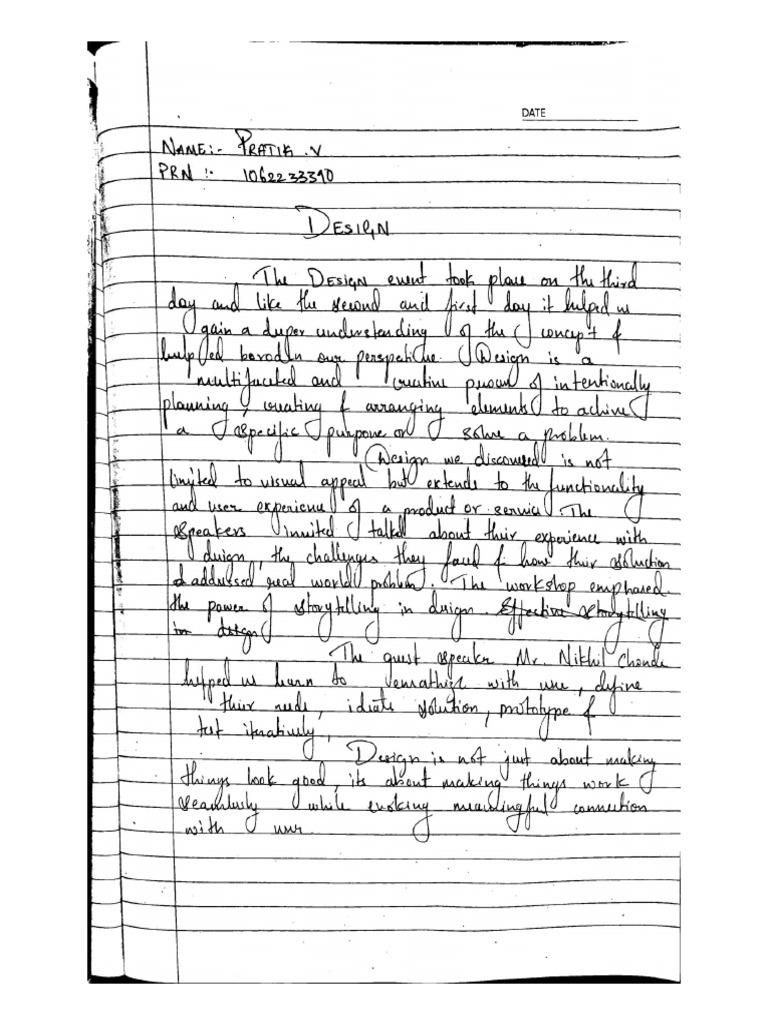 DATE
NAME:- PRATIK .V
PRN :- 1062233390
DESIGN
The DESIGN event took place on the third
day and like the second and first day it helped us
gain a deeper understanding of the concept &
helped boradn our perspective. Design is a
multifaceted and creative process of intentionally
planning, creating & arranging elements to achive
a specific purpose or solve a problem.
Design we discovered is not
limited to visual appeal but extends to the functionality
and user experience of a product or service. The
speakers invited talked about their experience with
design, the challenges they faced & how their solution
addressed real world problem. The workshop emphased
the power of storytelling in design. Effective storytelling
in design
The guest speaker Mr. Nikhil Chonde
helped us learn to emathize with user, define
their needs, ideate solution, prototype &
test iteratively,
Design is not just about making
things look good, its about making things work
seamlessly while evoking meaningful connection
with user